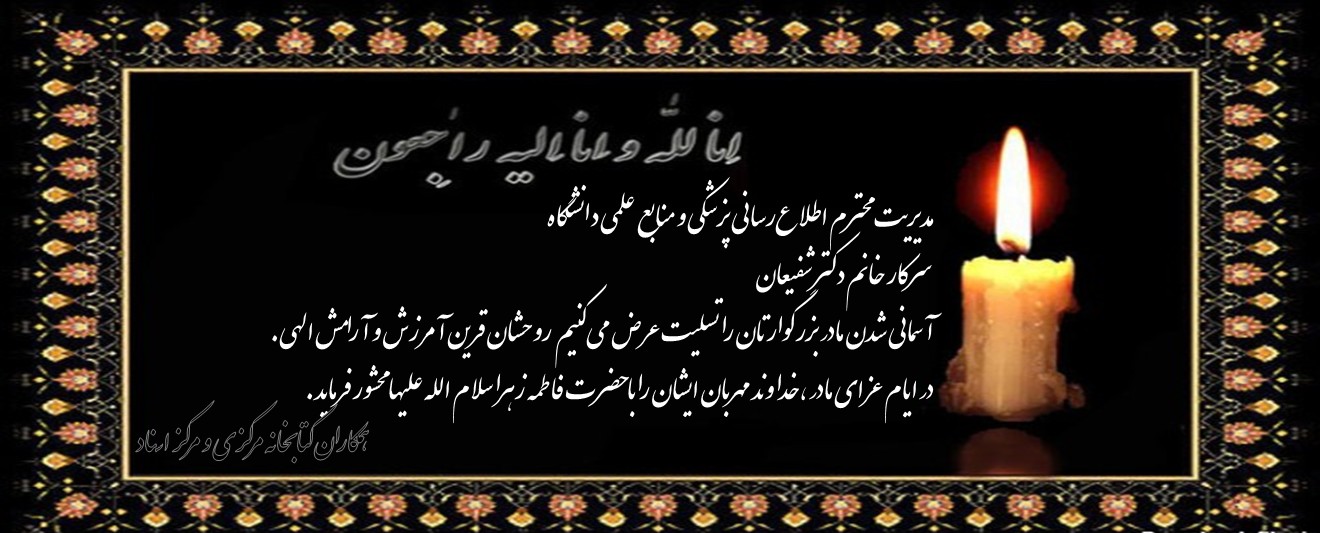 انا لله و انا الیه راجعون
مدیریت محترم اطلاع رسانی پزشکی و منابع علمی دانشگاه
سرکار خانم دکتر شفیعان
آسمانی شدن مادر بزرگوارتان را تسلیت عرض می کنیم روحشان قرین آمرزش و آرامش الهی.
در ایام عزای مادر، خداوند مهربان ایشان را با حضرت فاطمه زهرا سلام الله علیها محشور فرماید.
همکاران کتابخانه مرکزی و مرکز اسناد